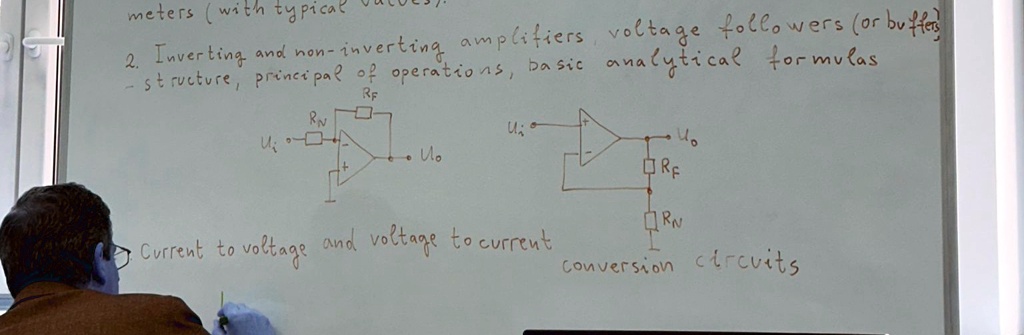 meters (with typical values).
2. Inverting and non-inverting amplifiers, voltage followers (or buffers)
- structure, principal of operations, basic analytical formulas
RF
RN
Ui
Uo
Ui
Uo
RF
RN
Current to voltage and voltage to current
conversion circuits